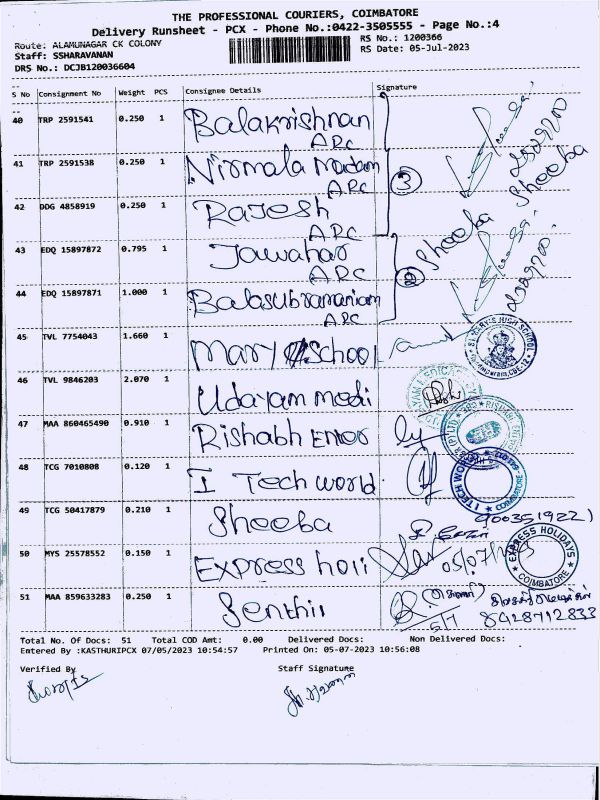 THE PROFESSIONAL COURIERS, COIMBATORE
Delivery Runsheet - PCX - Phone No.:0422-3505555 - Page No.:4
Route: ALAMUNAGAR CK COLONY
RS No.: 1200366
Staff: SSHARAVANAN
RS Date: 05-Jul-2023
DRS No.: DCJB120036604
S No Consignment No Weight PCS Consignee Details Signature
40 TRP 2591541 0.250 1 Balakrishnan
APC
41 TRP 2591538 0.250 1 Nirmala madam
APC
3
Sheeba
42 DDG 4858919 0.250 1 Rajesh
APC
43 EDQ 15897872 0.795 1 Jawahar
APC
2 Sheeba
44 EDQ 15897871 1.000 1 Balasubramaniam
APC
45 TVL 7754043 1.660 1 Mary School
46 TVL 9846203 2.070 1 Udayam medi
47 MAA 860465490 0.910 1 Rishabh Enter
48 TCG 7010808 0.120 1 I Tech world
I TECH WORLD
COIMBATORE
49 TCG 50417879 0.210 1 Sheeba
9003519221
50 MYS 25578552 0.150 1 Express holi
EXPRESS HOLIDAYS
COIMBATORE
51 MAA 859633283 0.250 1 Senthil
5/7 8428712833
Total No. Of Docs: 51 Total COD Amt: 0.00 Delivered Docs: Non Delivered Docs:
Entered By :KASTHURIPCX 07/05/2023 10:54:57 Printed On: 05-07-2023 10:56:08
Verified By Staff Signature